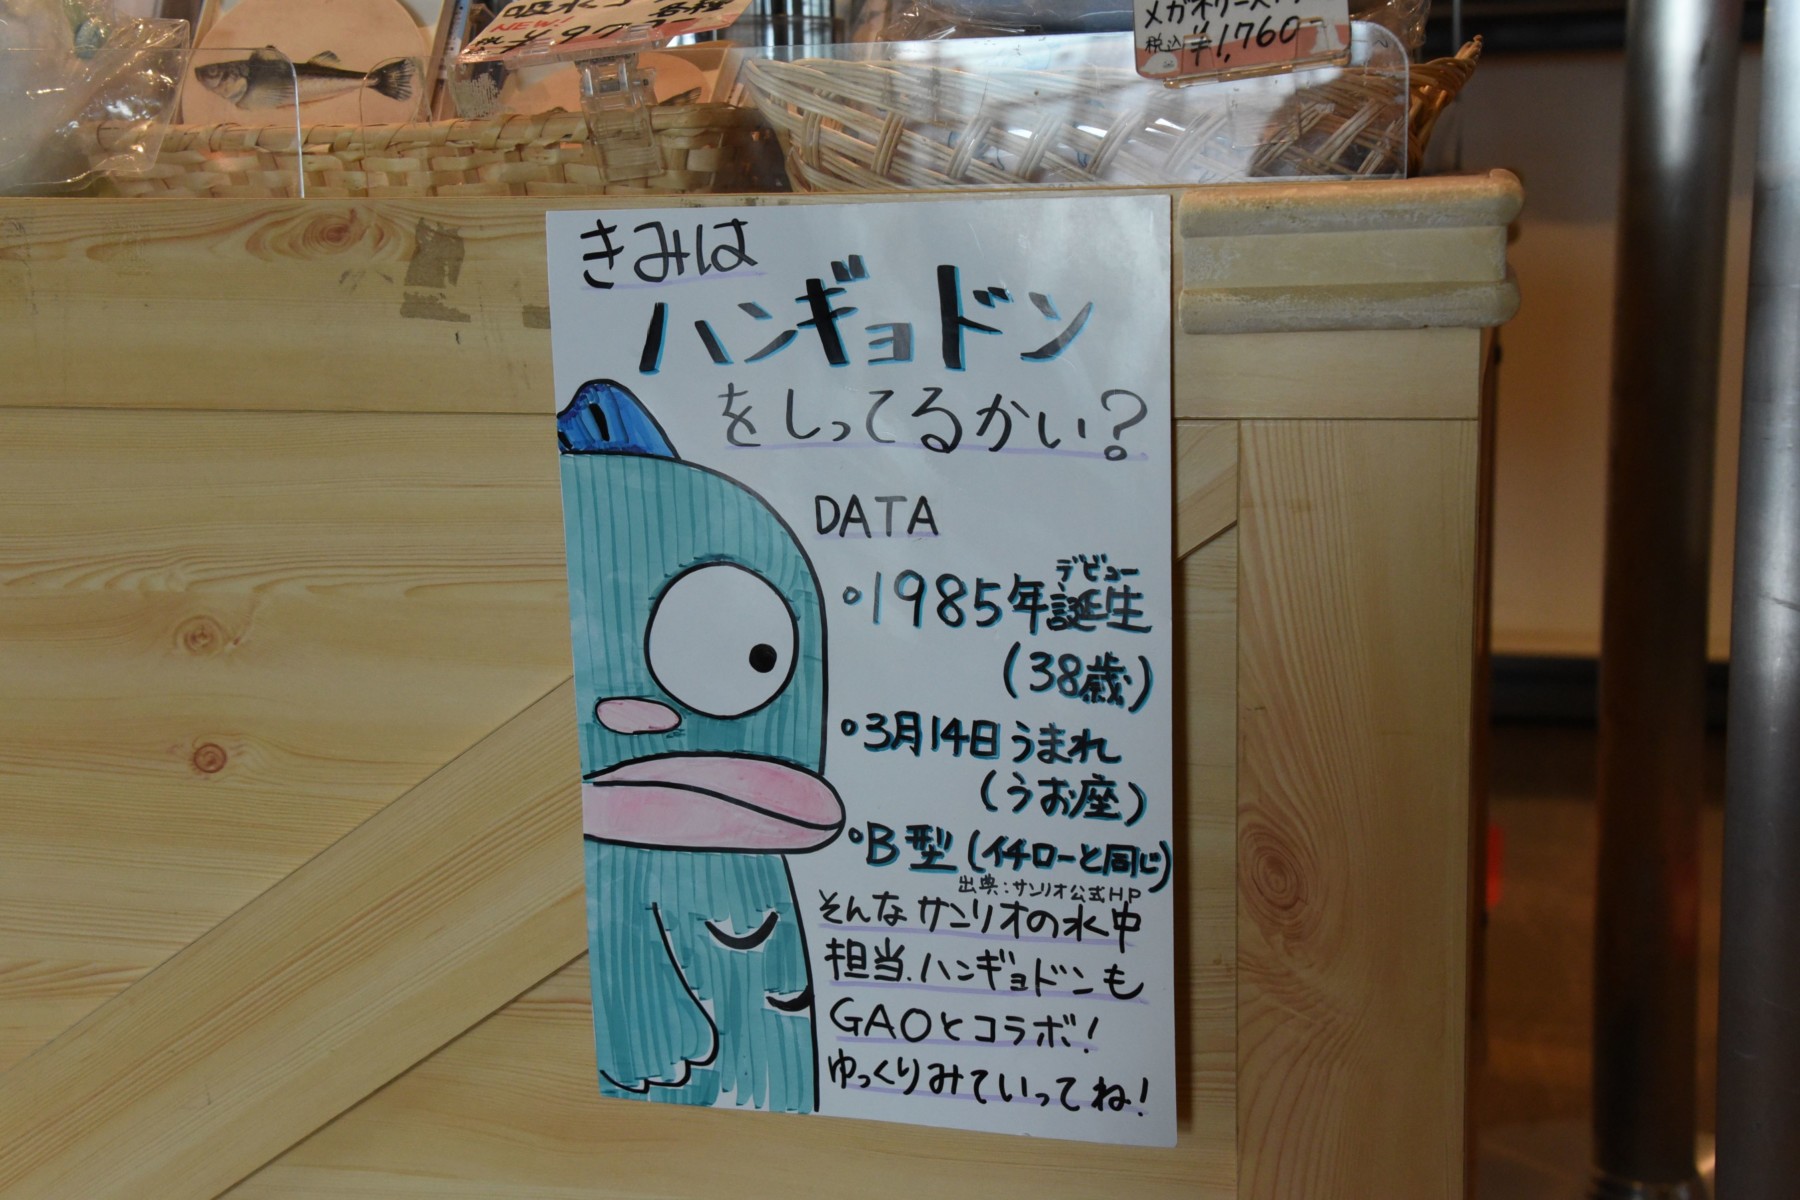 NEW!
メガネケース
税込 ¥1,760
きみは
ハンギョドン
をしってるかい?
DATA
デビュー
•1985年誕生
(38歳)
•3月14日うまれ
(うお座)
•B型(イチローと同じ)
出典:サンリオ公式HP
そんなサンリオの水中
担当、ハンギョドンも
GAOとコラボ!
ゆっくりみていってね!